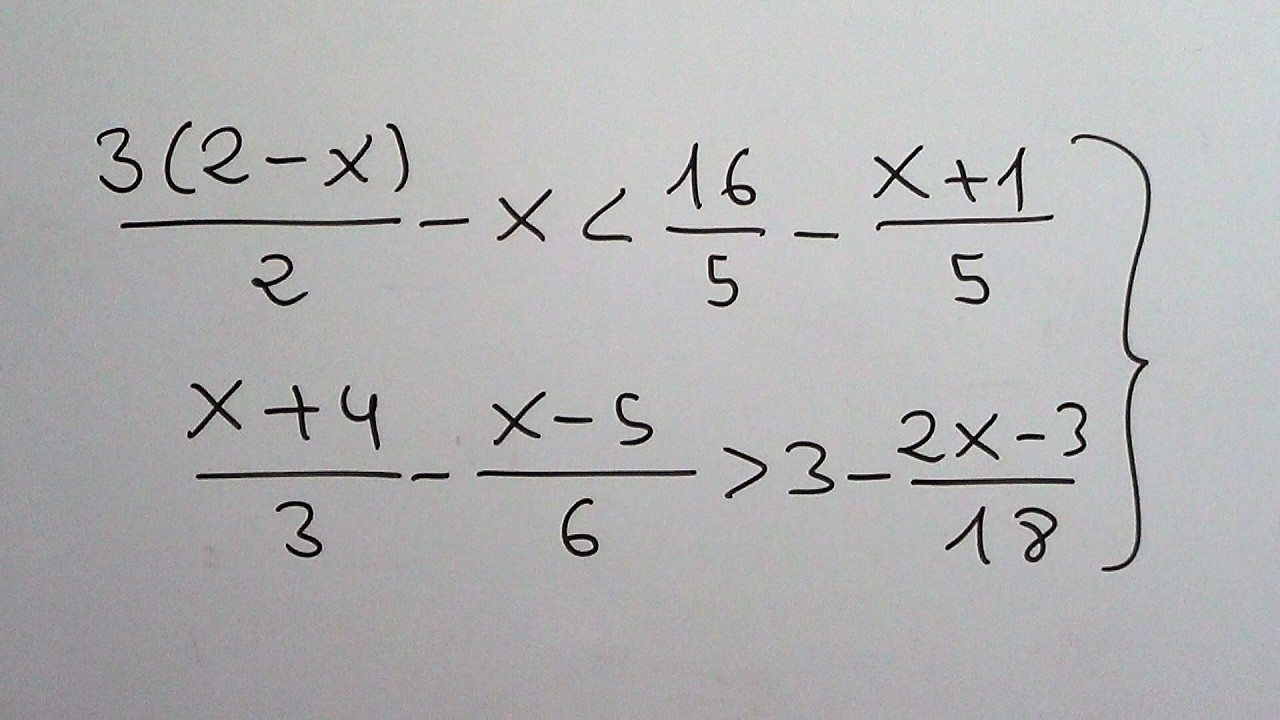 3(2-x)/2 - x < 16/5 - x+1/5
x+4/3 - x-5/6 > 3 - 2x-3/18